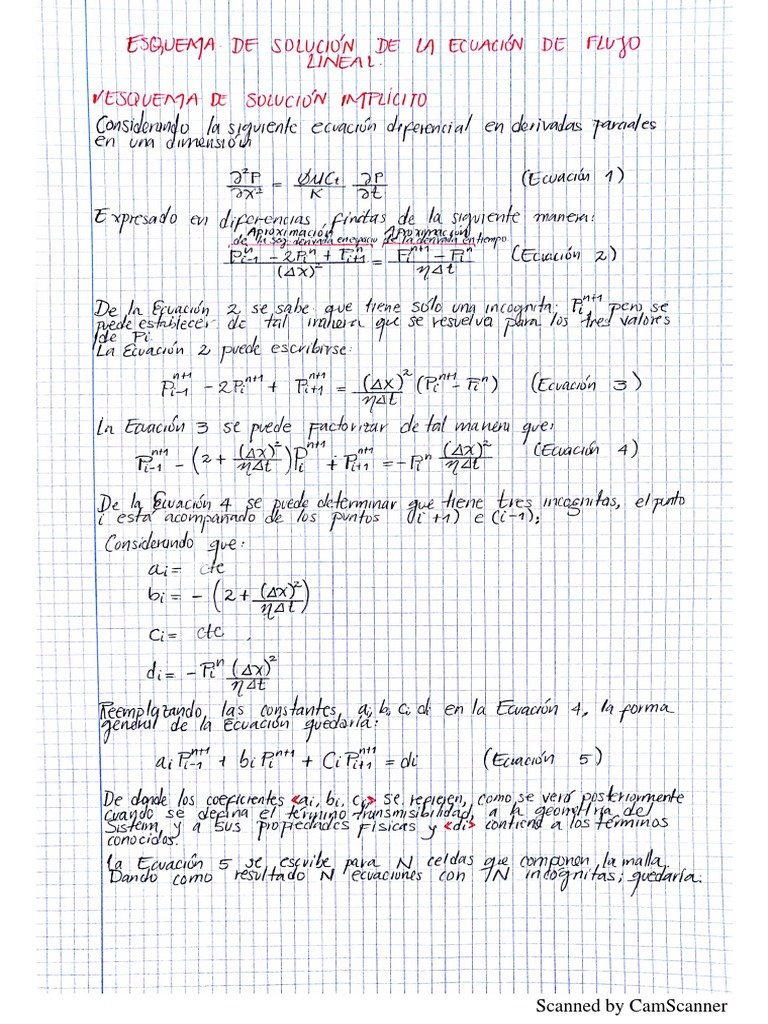 ESQUEMA DE SOLUCIÓN DE LA ECUACIÓN DE FLUJO
LINEAL.
✓ESQUEMA DE SOLUCIÓN IMPLÍCITO
Considerando la siguiente ecuación diferencial en derivadas parciales
en una dimensión
∂²P/∂x² = ØμCt/K ∂P/∂t (Ecuación 1)
Expresado en diferencias finitas de la siguiente manera:
Aproximación Aproximación
de la seg. derivada en espacio de la derivada en tiempo
(Pi-1^n - 2Pi^n + Pi+1^n)/(Δx)² = (Pi^n+1 - Pi^n)/ηΔt (Ecuación 2)
De la Ecuación 2 se sabe que tiene sólo una incognita; Pi^n+1, pero se
puede establecer de tal manera que se resuelva para los tres valores
de Pi.
La Ecuación 2 puede escribirse:
Pi-1^n+1 - 2Pi^n+1 + Pi+1^n+1 = (Δx)²/ηΔt (Pi^n+1 - Pi^n) (Ecuación 3)
La Ecuación 3 se puede Factorizar de tal manera que:
Pi-1^n+1 - (2 + (Δx)²/ηΔt) Pi^n+1 + Pi+1^n+1 = -Pi^n (Δx)²/ηΔt (Ecuación 4)
De la Ecuación 4 se puede determinar que tiene tres incognitas, el punto
i está acompañado de los puntos (i+1) e (i-1);
Considerando que:
ai = ctc
bi = -(2 + (Δx)²/ηΔt)
ci = ctc
di = -Pi^n (Δx)²/ηΔt
Reemplazando las constantes, ai bi ci di en la Ecuación 4, la forma
general de la Ecuación quedaría:
aiPi-1^n+1 + biPi^n+1 + CiPi+1^n+1 = di (Ecuación 5)
De donde los coeficientes <ai, bi, ci> se refieren, como se verá posteriormente
cuando se defina el término transmisibilidad, a la geometría del
Sistem, y a sus propiedades físicas y <di> contiene a los términos
conocidos.
La Ecuación 5 se escribe para N celdas que componen la malla.
Dando como resultado N ecuaciones con N incognitas; quedaría:
Scanned by CamScanner